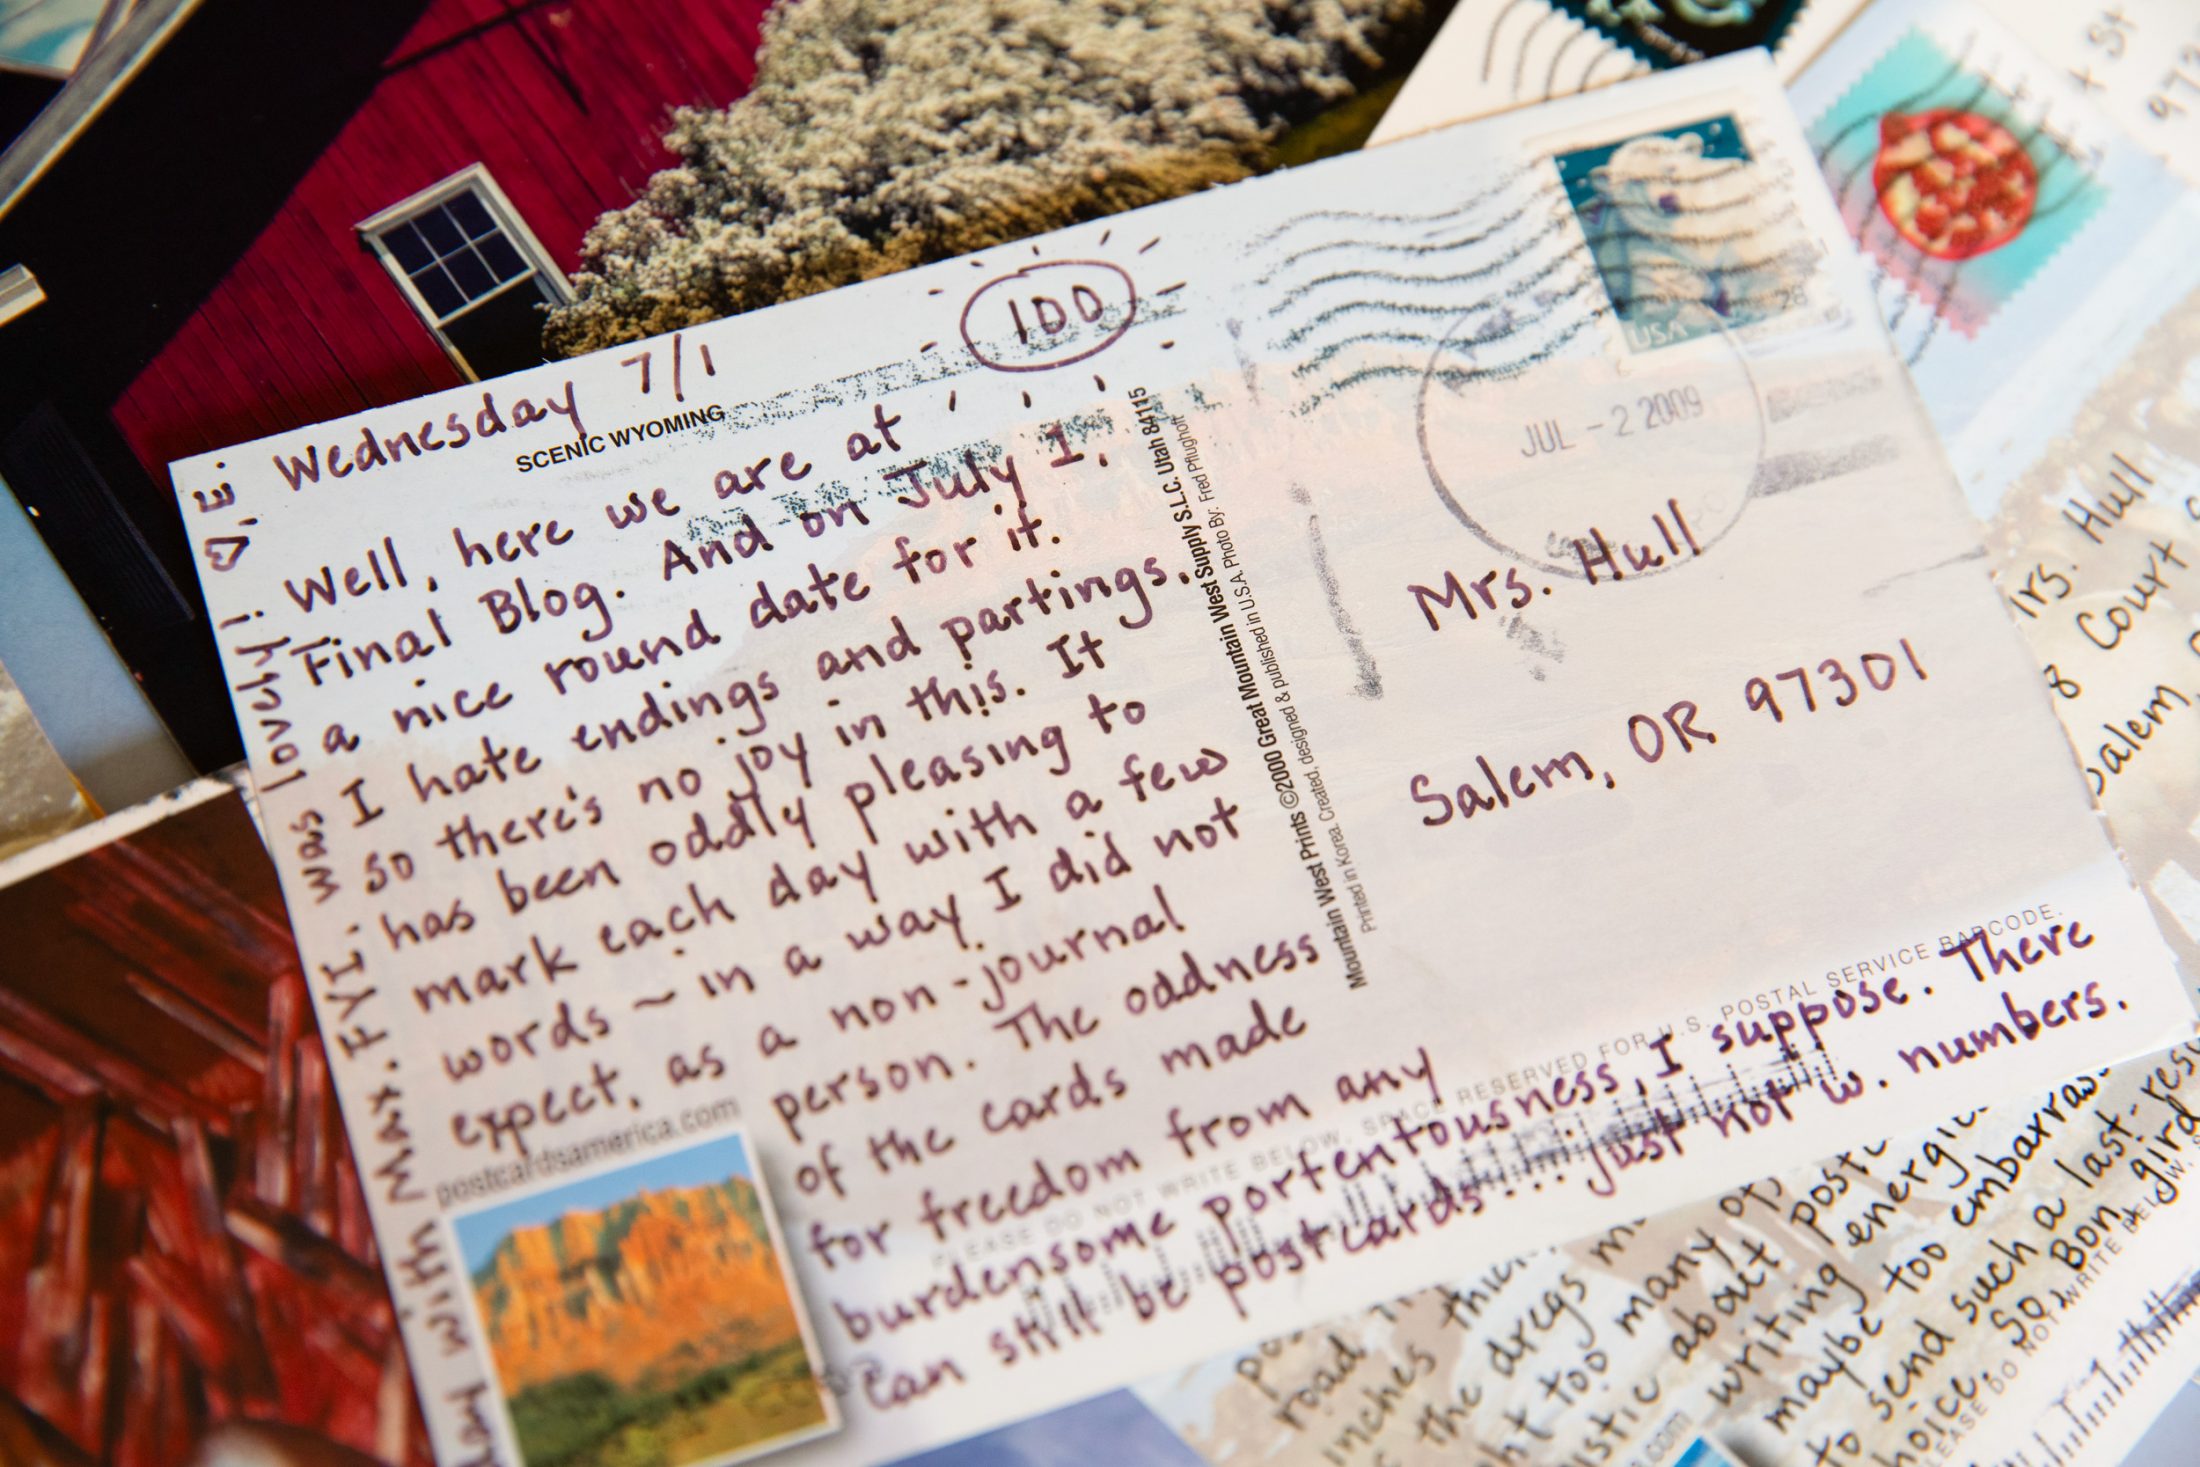 Wednesday 7/1
100
SCENIC WYOMING
Well, here we are at
Final Blog. And on July 1,
a nice round date for it.
I hate endings and partings,
so there's no joy in this. It
has been oddly pleasing to
mark each day with a few
words ~ in a way I did not
expect, as a non-journal
person. The oddness
of the cards made
for freedom from any
burdensome portentousness, I suppose. There
can still be postcards... just not w. numbers.
w/ Max. FYI. was lovely! ♡, E.
postcardsamerica.com
Mountain West Prints ©2000 Great Mountain West Supply S.L.C. Utah 84115
Printed in Korea. Created, designed & published in U.S.A. Photo By: Fred Pflughoft
USA
28
JUL - 2 2009
Mrs. Hull
Salem, OR 97301
PLEASE DO NOT WRITE BELOW. SPACE RESERVED FOR U.S. POSTAL SERVICE BARCODE.
St
973
Mrs. Hull
8 Court S
Salem,
road
inches thick
the dregs
too many of
about
writing energ
maybe too embarras
to send such a last-res
choice. So, Bon
gird
DO NOT WRITE BELOW. S
.com